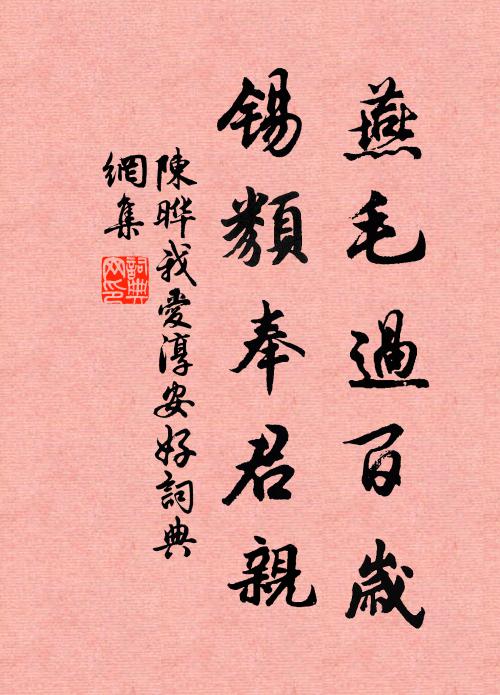 燕毛過百歲
錫類奉君親
陳晔我愛淳安好詞典
網集
詞典
网印